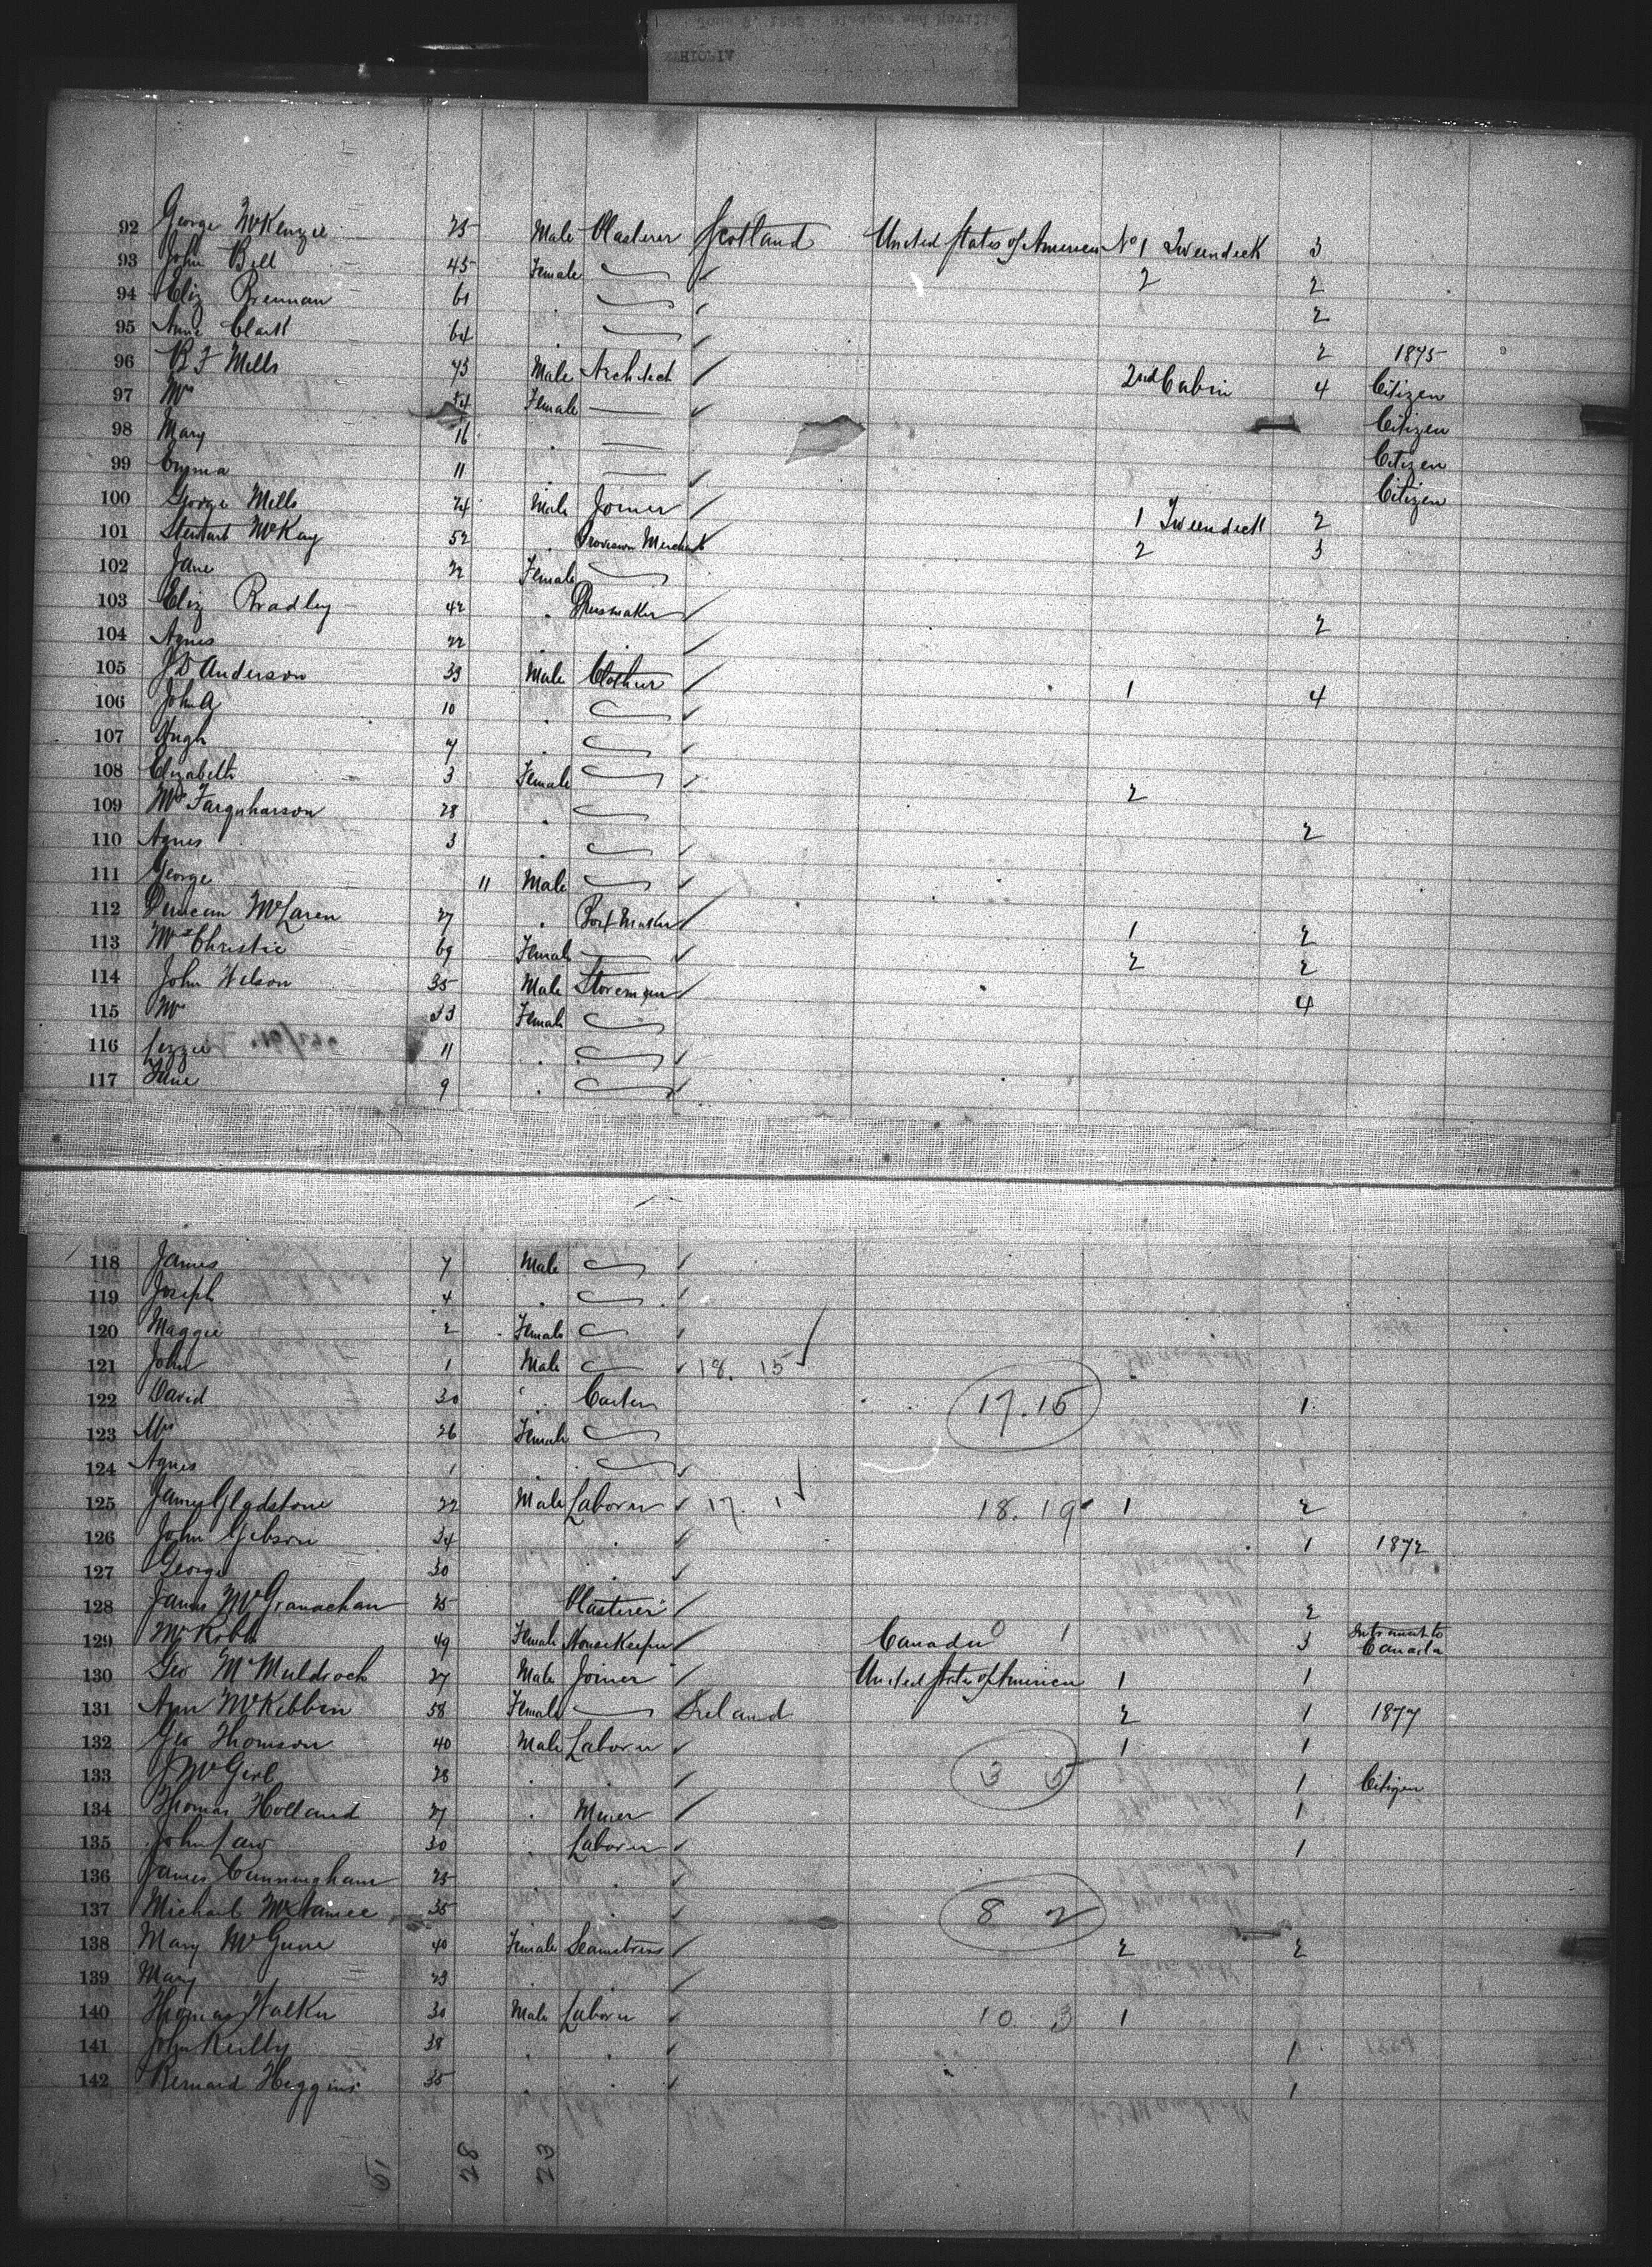 92 George McKenzie 25 Male Plasterer Scotland United States of America No 1 Tweendeck 3
93 John Bell 45 Female 2 2
94 Eliz Brennan 61 2
95 Anne Clark 64 2 1875
96 R F Mills 43 Male Architect 2nd Cabin 4 Citizen
97 Mrs 34 Female Citizen
98 Mary 16 Citizen
99 Emma 11 Citizen
100 George Mills 24 Male Joiner 1 Tweendeck 2
101 Stewart McKay 52 Provision Merchant 2 3
102 Jane 22 Female
103 Eliz Bradley 42 Dressmaker 2
104 Agnes 22
105 J D Anderson 39 Male Clothier 1 4
106 John A 10
107 Hugh 7
108 Elizabeth 3 Female 2
109 Mrs Farquharson 28 2
110 Agnes 3
111 George 11 Male
112 Duncan McLaren 27 Maker 1 2
113 Mrs Christie 69 Female 2 2
114 John Wilson 35 Male Storeman 4
115 Mrs 33 Female
116 Lizzie 11
117 Jane 9
118 James 7 Male
119 Joseph 4
120 Maggie 2 Female
121 John 1 Male 18. 15
122 David 30 " Carter 17.15 1
123 Mrs 26 Female
124 Agnes 1
125 James Gladstone 22 Male Laborer 17. 1 18.19 1 2
126 John Gibson 34 1 1872
127 George 30
128 James McGranachan 25 Plasterer 2
129 Mrs Robb 49 Female Housekeeper Canada 0 1 3 Intransit to Canada
130 Geo McMuldroch 27 Male Joiner United States of America 1 1
131 Ann McKibbin 58 Female Ireland 2 1 1877
132 Geo Thomson 40 Male Laborer 1 1
133 J McGirl 28 3 5 1 Citizen
134 Thomas Holland 27 Miner 1
135 John Law 30 Laborer 1
136 James Cunningham 25
137 Michael McNamee 35 8 2
138 Mary McGune 40 Female Seamstress 2 2
139 Mary 23
140 Thomas Walker 30 Male Laborer 10. 3 1
141 John Reilly 38 1
142 Bernard Higgins 35 1
51 28 23